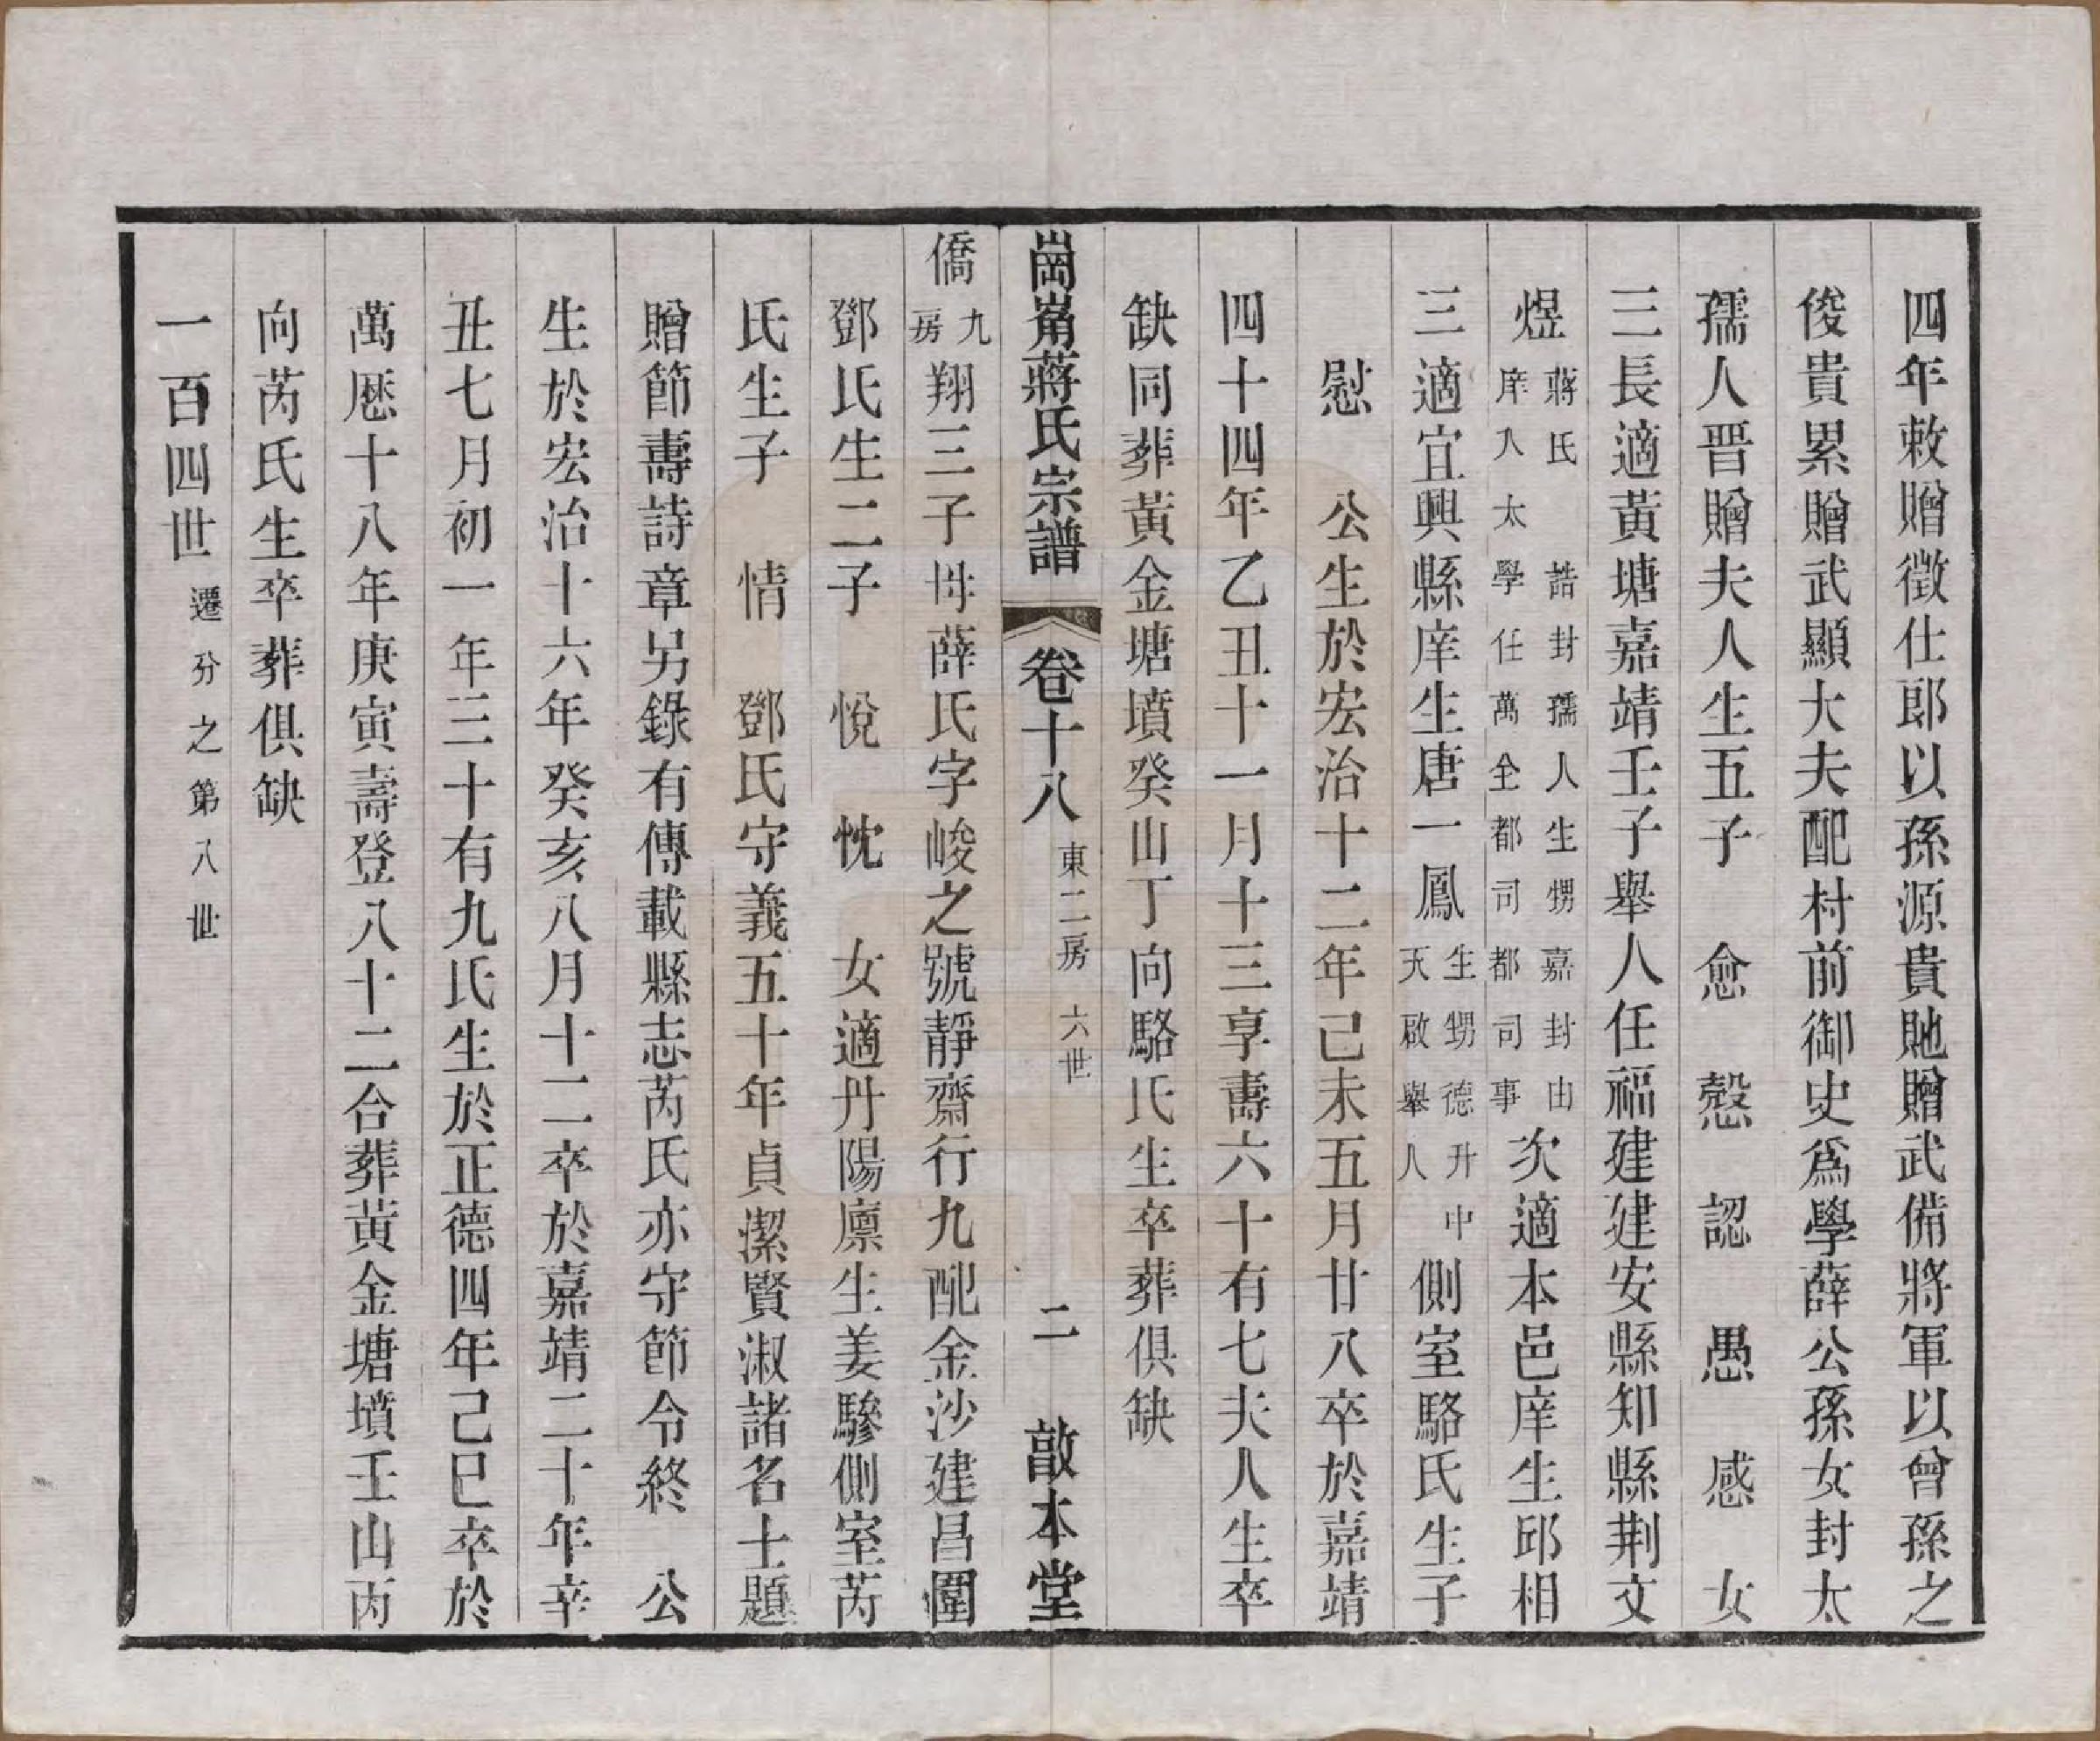 四年敕贈徵仕郎以孫源貴貤贈武備將軍以曾孫之
俊貴累贈武顯大夫配村前御史爲學薛公孫女封太
孺人晋贈夫人生五子　愈　慤　認　愚　感　女
三長適黃塘嘉靖壬子舉人任福建建安縣知縣荆文
煜蔣氏　誥封孺人生甥嘉封由庠入太學任萬全都司都司事次適本邑庠生邱相
三適宜興縣庠生唐一鳳生甥德升中天啟舉人側室駱氏生子
慰　公生於宏治十二年己未五月廿八卒於嘉靖
四十四年乙丑十一月十三享壽六十有七夫人生卒
缺同葬黃金塘墳癸山丁向駱氏生卒葬俱缺
崗崙蔣氏宗譜　卷十八　東二房　六世　二　敵本堂
僑九房翔三子母薛氏字峻之號靜齋行九配金沙建昌圍
鄧氏生二子　悅　忱　女適丹陽廪生姜驂側室芮
氏生子　情　鄧氏守義五十年貞潔賢淑諸名士題
贈節壽詩章另錄有傳載縣志芮氏亦守節令終　公
生於宏治十六年癸亥八月十二卒於嘉靖二十年辛
丑七月初一年三十有九氏生於正德四年己巳卒於
萬厯十八年庚寅壽登八十二合葬黄金塘墳壬山丙
向芮氏生卒葬俱缺
一百四世遷分之第八世